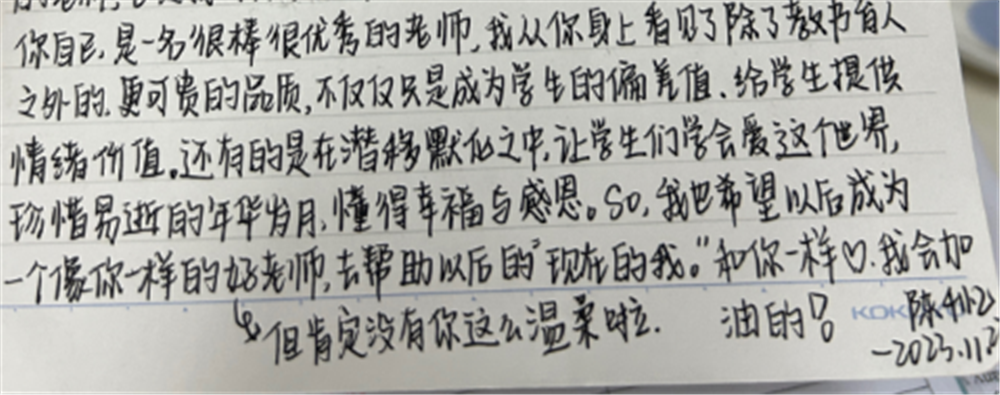 你自己,是一名很棒很优秀的老师,我从你身上看见了除了教书育人
之外的、更可贵的品质,不仅仅只是成为学生的偏差值、给学生提供
情绪价值。还有的是在潜移默化之中,让学生们学会爱这个世界,
珍惜易逝的年华岁月,懂得幸福与感恩。So,我也希望以后成为
一个像你一样的好老师,去帮助以后的“现在的我。”和你一样♡.我会加
油的!
但肯定没有你这么温柔啦.
KOK
陈
-2023.11.2